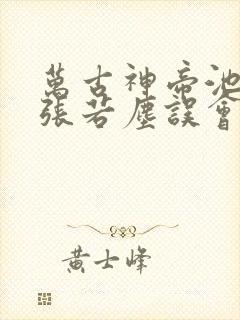 萬古神帝池
張若塵誤會
黃士峰